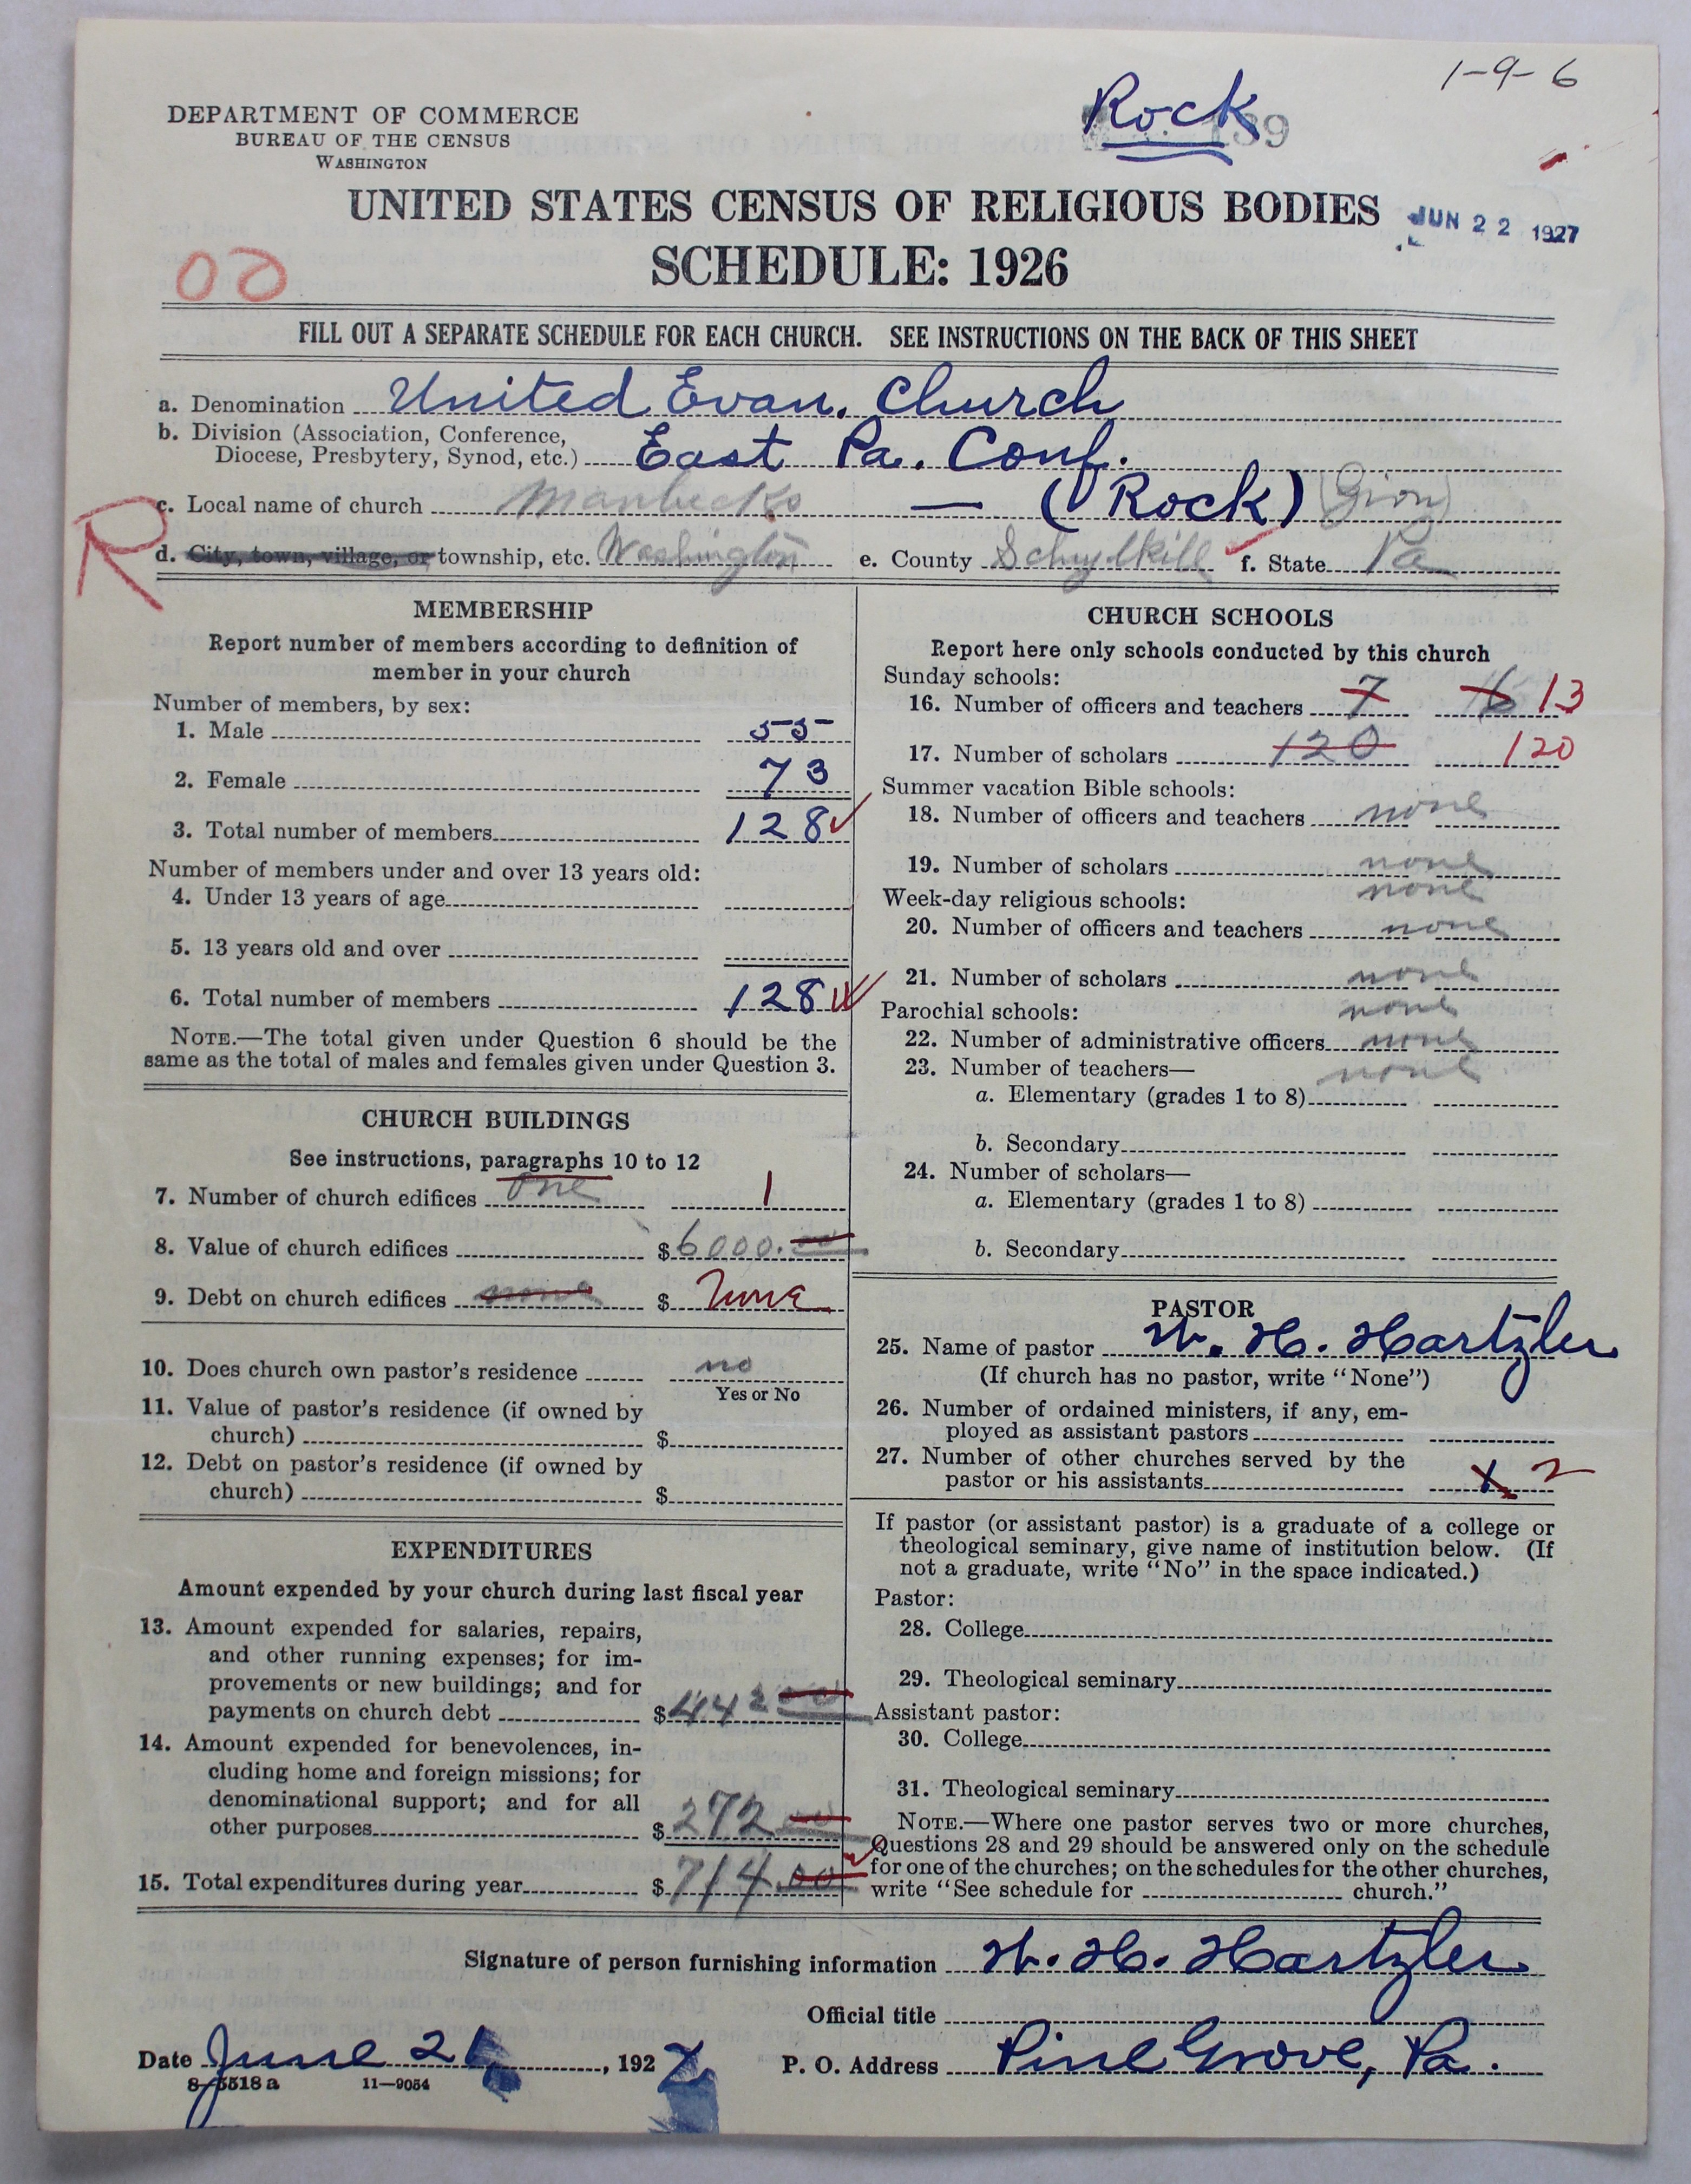 1-9-6
Rock
139
DEPARTMENT OF COMMERCE
BUREAU OF THE CENSUS
WASHINGTON
UNITED STATES CENSUS OF RELIGIOUS BODIES
JUN 22 1927
SCHEDULE: 1926
00
FILL OUT A SEPARATE SCHEDULE FOR EACH CHURCH. SEE INSTRUCTIONS ON THE BACK OF THIS SHEET
a. Denomination United Evan. Church
b. Division (Association, Conference,
Diocese, Presbytery, Synod, etc.) East Pa. Conf.
c. Local name of church Manbecks — (Rock) (Zion)
R
d. City, town, village, or township, etc. Washington e. County Schuylkill f. State Pa
MEMBERSHIP
Report number of members according to definition of
member in your church
Number of members, by sex:
1. Male 55
2. Female 73
3. Total number of members 128
Number of members under and over 13 years old:
4. Under 13 years of age
5. 13 years old and over
6. Total number of members 128
NOTE.—The total given under Question 6 should be the
same as the total of males and females given under Question 3.
CHURCH BUILDINGS
See instructions, paragraphs 10 to 12
7. Number of church edifices one 1
8. Value of church edifices $6000.00
9. Debt on church edifices none $ None
10. Does church own pastor's residence no
Yes or No
11. Value of pastor's residence (if owned by
church) $
12. Debt on pastor's residence (if owned by
church) $
EXPENDITURES
Amount expended by your church during last fiscal year
13. Amount expended for salaries, repairs,
and other running expenses; for im-
provements or new buildings; and for
payments on church debt $442 00
14. Amount expended for benevolences, in-
cluding home and foreign missions; for
denominational support; and for all
other purposes $272 00
15. Total expenditures during year $714.00
CHURCH SCHOOLS
Report here only schools conducted by this church
Sunday schools:
16. Number of officers and teachers 7 6 13
17. Number of scholars 120 120
Summer vacation Bible schools:
18. Number of officers and teachers none
19. Number of scholars none
none
Week-day religious schools:
20. Number of officers and teachers none
21. Number of scholars none
Parochial schools: none
22. Number of administrative officers none
23. Number of teachers— none
a. Elementary (grades 1 to 8)
b. Secondary
24. Number of scholars—
a. Elementary (grades 1 to 8)
b. Secondary
PASTOR
25. Name of pastor W. H. Hartzler
(If church has no pastor, write "None")
26. Number of ordained ministers, if any, em-
ployed as assistant pastors
27. Number of other churches served by the
pastor or his assistants x 2
If pastor (or assistant pastor) is a graduate of a college or
theological seminary, give name of institution below. (If
not a graduate, write "No" in the space indicated.)
Pastor:
28. College
29. Theological seminary
Assistant pastor:
30. College
31. Theological seminary
NOTE.—Where one pastor serves two or more churches,
Questions 28 and 29 should be answered only on the schedule
for one of the churches; on the schedules for the other churches,
write "See schedule for church."
Signature of person furnishing information W. H. Hartzler
Official title
Date June 21, 1927 P. O. Address Pine Grove, Pa.
8-5518 a 11-9054